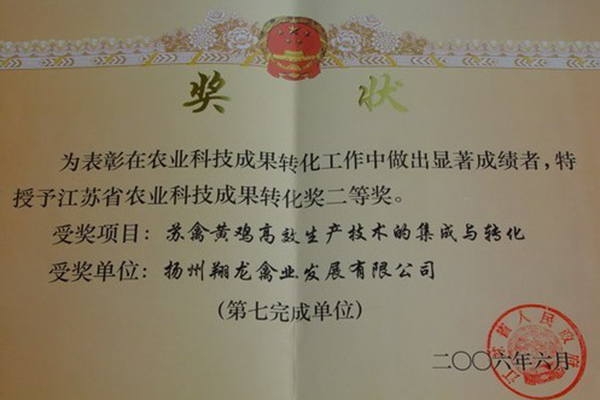 奖状
为表彰在农业科技成果转化工作中做出显著成绩者,特
授予江苏省农业科技成果转化奖二等奖。
受奖项目:苏禽黄鸡高效生产技术的集成与转化
受奖单位:扬州翔龙禽业发展有限公司
(第七完成单位)
二〇〇六年六月
江苏省人民政府